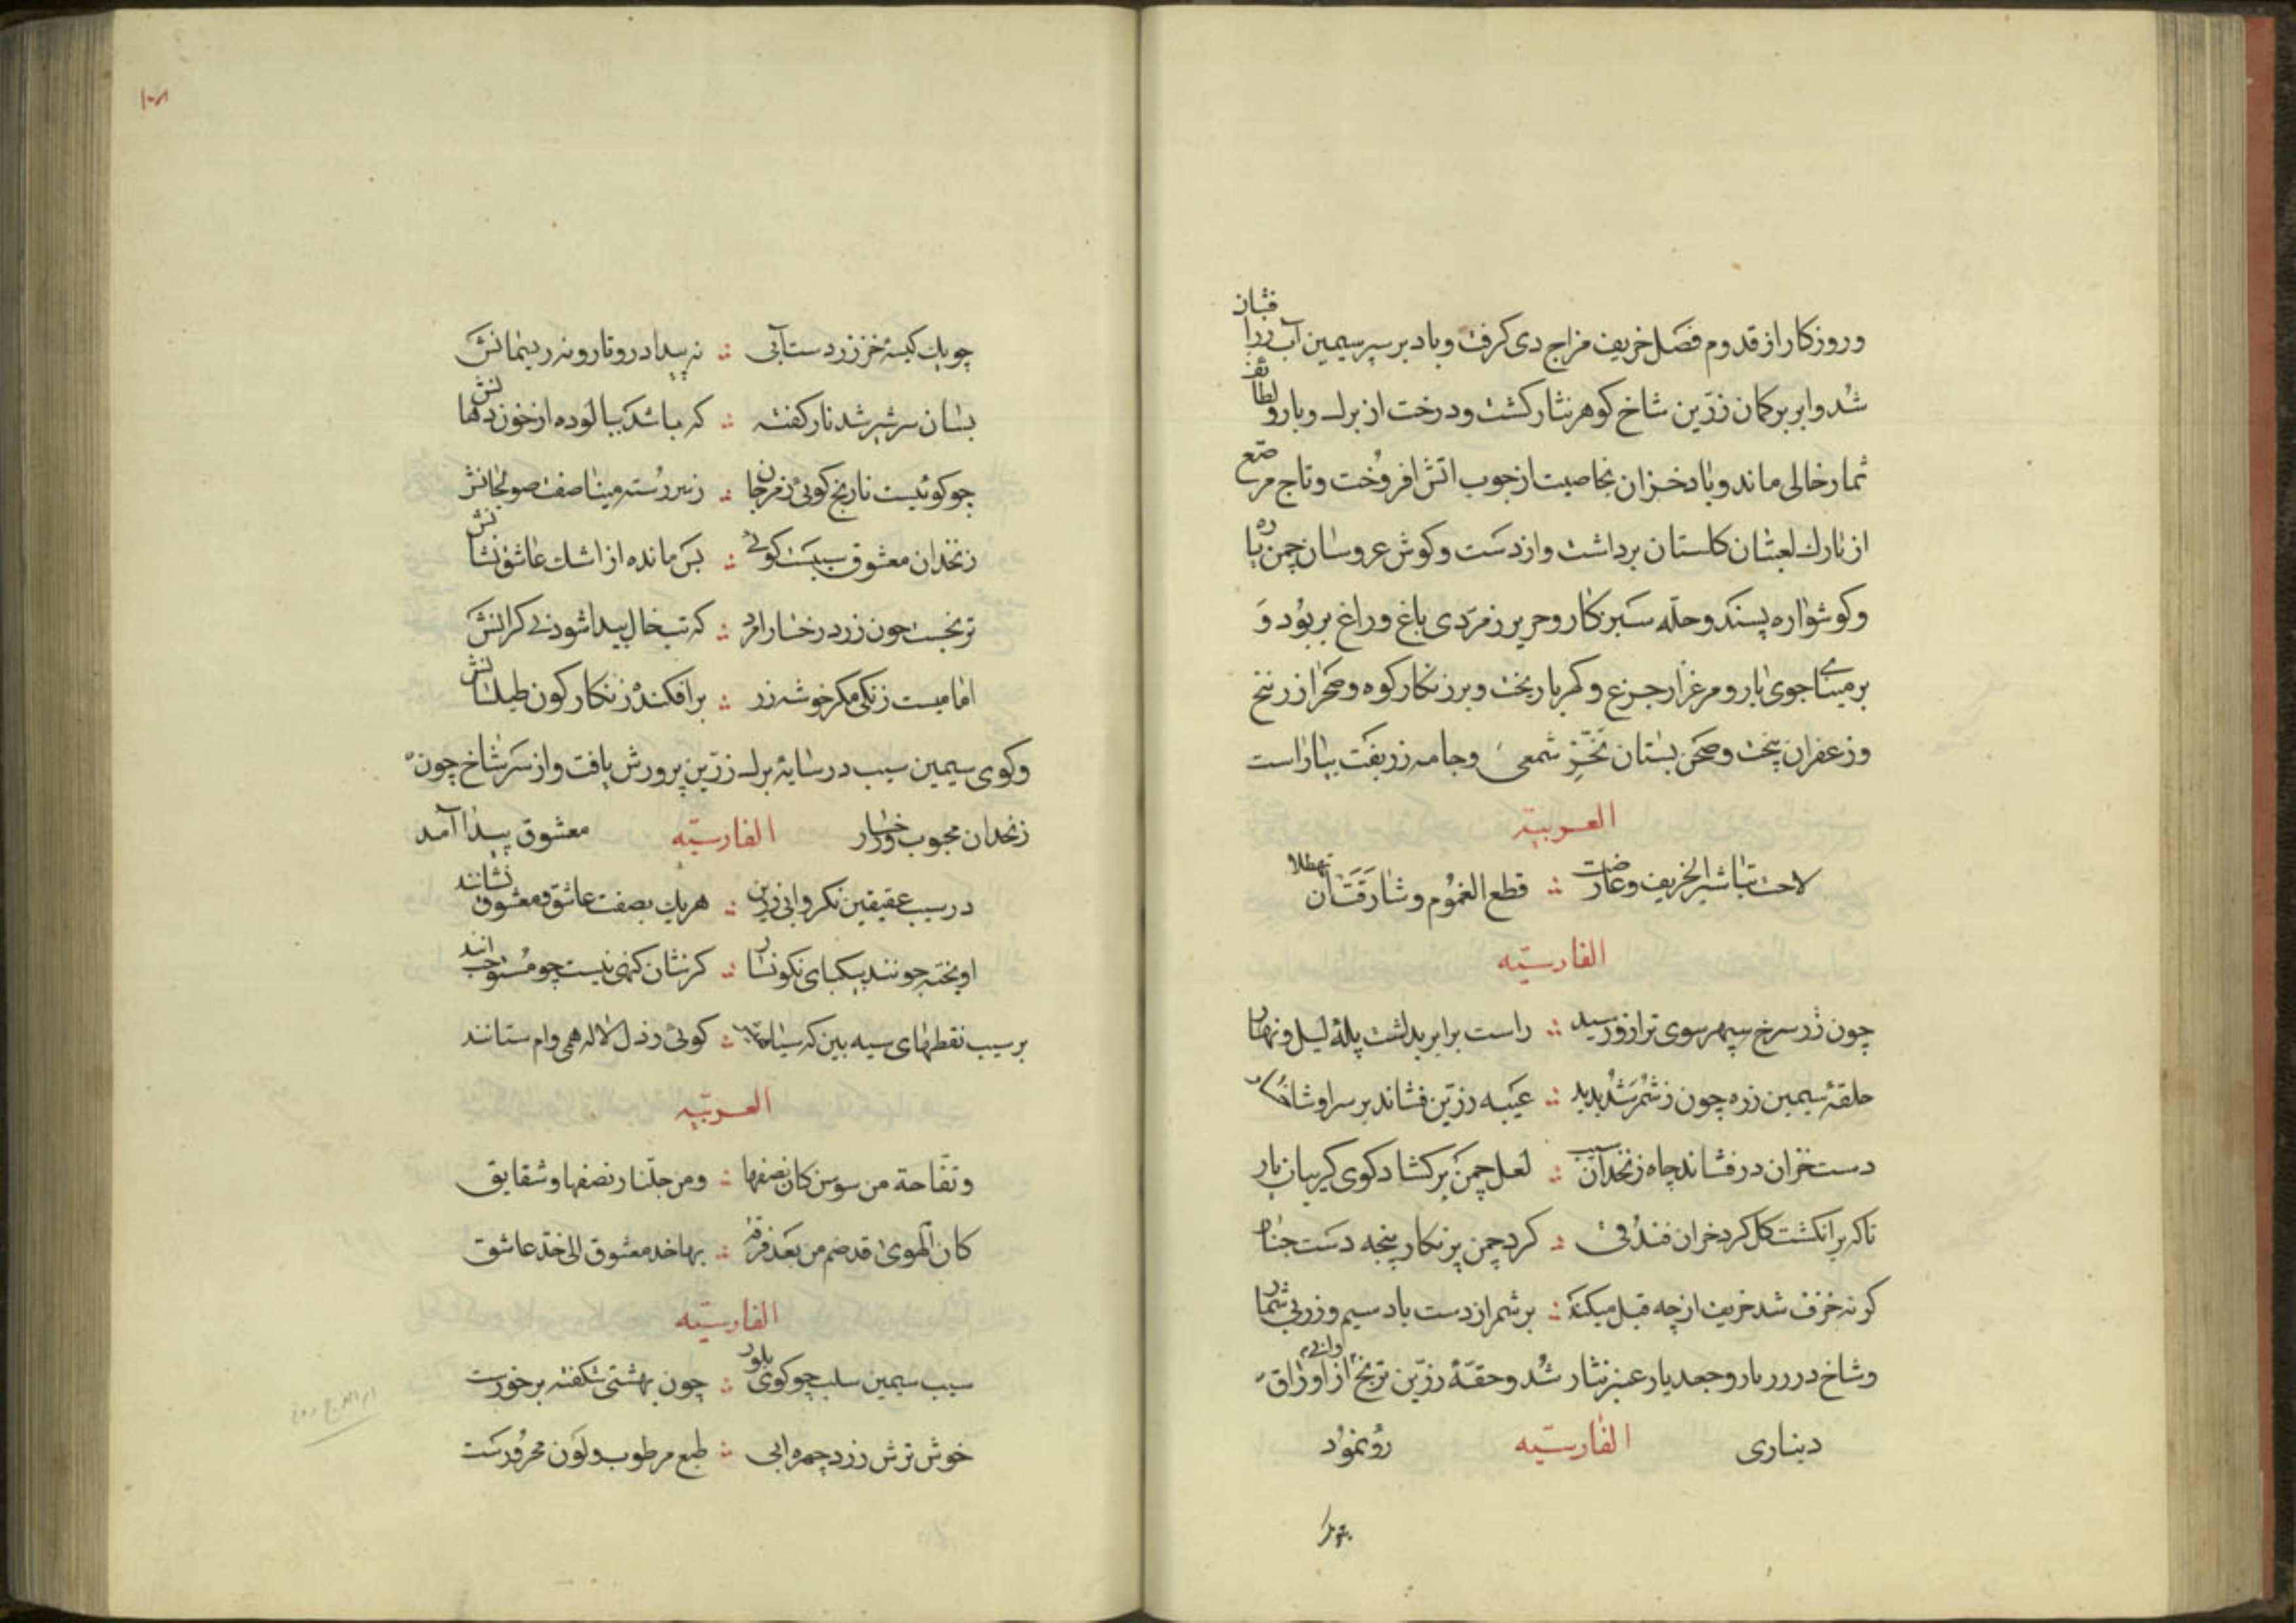 وروزکار از قدوم فصل خریف مزاج دی کرفت وباد بر سپر سیمین آب زره فشان
شد وابر بر کمان زرّین شاخ کوهر نثار کشت ودرخت از برک وبار ولطائف
ثمار خالی ماند وباد خزان بخاصیت از چوب اتش افروخت وتاج مرصّع
از تارک لعبتان کلستان برداشت واز دست وکوش عروسان چمن یاره
وکوشواره پستد وحلّه سبز کار وحریر زمرّدی باغ وراغ بربود وَ
بر مینای جویبار ومرغزار جزع وکهربا ریخت وبر زنکار کوه وصحرا زرنیخ
وزعفران بیخت وصحن بستان بخزّ شمعی وجامه زربفت بیاراست
العربیّة
لاحت تباشیر الخریف وعارضت ؞ قطع الغموم وشارفت ان تهطلا
الفارسیّه
چون زر سرخ سپهر سوی ترازو رسید ؞ راست برابر بداشت پلهٔ لیل ونهار
حلقهٔ سیمین زره چون ز شمر شد پدید ؞ عیبه زرّین فشاند بر سر او شاخسار
دست خزان در فشاند چاه زنخدان سیب ؞ لعل چمن بر کشاد کوی کریبان نار
تا که بر انکشت کل کرد خزان فندقی ؞ کرد چمن پر نکار پنجه دست چنار
کونه خزف شد خریف از چه قبل میکند ؞ بر شمر از دست باد سیم وزر بی شمار
وشاخ درر بار وجعد یار عنبر نثار شد وحقّهٔ زرّین ترنج از اوراق
دیناری الفارسیّه رو نمود
چو یک کیسهٔ خز زردست آبی ؞ نه پیدا درو تار ونه ریسمانش
بسان سر شیر شد نار کفته ؞ که باشد بیالوده از خون دهانش
چو کوئیست نارنج کوئی ز مرجان ؞ زبر رسته مینا صفت صولجانش
زنخدان معشوق سیبست کوئی ؞ بس مانده از اشک عاشق نشانش
ترنجست چون زرد رخسار امرد ؞ که تبخال پیدا شود بی کرانش
اما میست زنکی مکر خوشه رز ؞ بر افکنده زنکار کون طیلسانش
وکوی سیمین سیب در سایهٔ برک زرّین پرورش یافت واز سر شاخ چون
زنخدان محبوب ورخسار الفارسیّه معشوق پیدا آمد
در سیب عقیقین نکر وابی زرین ؞ هر یک بصفت عاشق ومعشوق نشانند
اویخته چونند بیکپای نکونسار ؞ کر نشان کنهی نیست چو مستوجب انند
بر سیب نقطهای سیه بین که سیاهی ؞ کوئی ز دل لاله همی وام ستانند
العربیّه
وتفّاحة من سوسن کان نصفها ؞ ومن جلّنار نصفها وشقایق
کان الهوی قد ضم من بعد فرقة ؞ بها خد معشوق الی خدّ عاشق
الفارسیّه
سیب سیمین سلب چو کوی بلور ؞ چون بهشتی شکفته بر خورست
خوش ترش زرد چهره ابی ؞ طبع مرطوب ولون محرورست